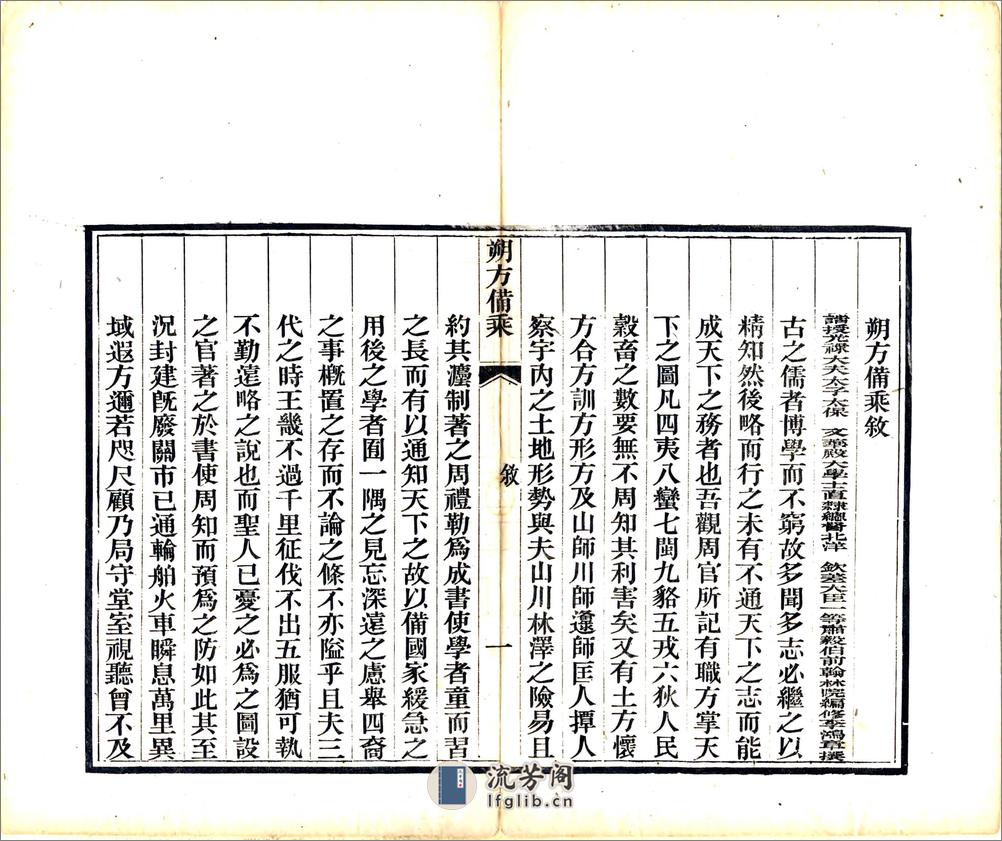 朔方備乘敘
誥授光祿大夫太子太保 文華殿大學士直隸總督北洋 欽差大臣一等肅毅伯前翰林院編修李鴻章撰
古之儒者博學而不窮故多聞多志必繼之以
精知然後略而行之未有不通天下之志而能
成天下之務者也吾觀周官所記有職方掌天
下之圖凡四夷八蠻七閩九貉五戎六狄人民
穀畜之數要無不周知其利害矣又有土方懷
方合方訓方形方及山師川師邍師匡人撢人
察宇內之土地形勢與夫山川林澤之險易且
朔方備乘
敘
一
約其灋制著之周禮勒爲成書使學者童而習
之長而有以通知天下之故以備國家緩急之
用後之學者囿一隅之見忘深遠之慮舉四裔
之事槪置之存而不論之條不亦隘乎且夫三
代之時王畿不過千里征伐不出五服猶可執
不勤遠略之說也而聖人已憂之必爲之圖設
之官著之於書使周知而預爲之防如此其至
況封建旣廢關市已通輪舶火車瞬息萬里異
域遐方邇若咫尺顧乃局守堂室視聽曾不及
流芳阁
lfglib.cn